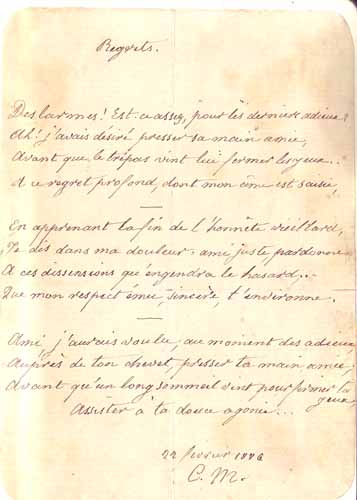 Regrets.
Des larmes! Est-ce assez, pour les derniers adieux?
Ah! j'avais désiré presser sa main amie,
Avant que le trépas vint lui fermer les yeux..
A ce regret profond, dont mon âme est saisie,
En apprenant la fin de l'honnête vieillard,
Je dis dans ma douleur: ami juste pardonne
A ces dissensions qu'engendra le hasard..
Que mon respect ému, sincère, t'environne.
Ami, j'aurais voulu, au moment des adieux,
Auprès de ton chevet, presser ta main amie,
Avant qu'un long sommeil vint pour fermer ta
yeux,
Assister à ta douce agonie...
22 février 1886
C. M.